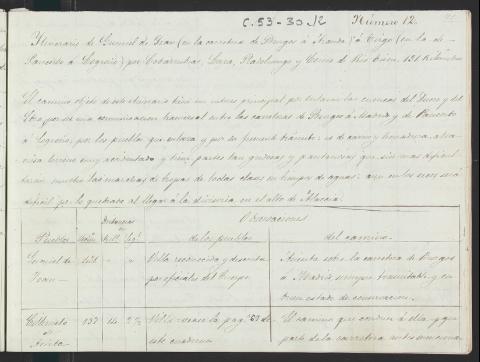 C.53-30/2
Número 12.
Itinerario de Gumiel de Izan (en la carretera de Burgos á Aranda) á Tirgo (en la de
á Logroño) por Cobarrubias, Lara, y Cerezo de Rio Tirón, 151 Kilómetros
El camino objeto de este itinerario tiene un interes principal por enlazar las cuencas del Duero y del
Ebro por ser una comunicacion transversal entre las carreteras de Burgos á Madrid y de
á Logroño, por los pueblos que enlaza y por su frecuente tránsito: es de carros y herradura, atra-
viesa terreno muy accidentado y tiene partes tan gredosas y pantanosas que sin mas dificul-
tarian mucho las marchas de tropas de todas clases en tiempo de aguas: aun en los secos será
dificil por lo quebrado al llegar á la divisoria, en el alto de
Pueblos
Vecin.
Distancias
en
Kil. Leg.
Observaciones
de los pueblos
del camino.
Gumiel de
Izan
" "
Villa reconocida y descrita
por oficiales del Cuerpo
Asienta sobre la carretera de Burgos
á Madrid siempre transitable y en
buen estado de conservacion.
137 14 2½
Villa: vease la pag.
este cuaderno
El camino que conduce á ella, p que
parte de la carretera antes mencionada